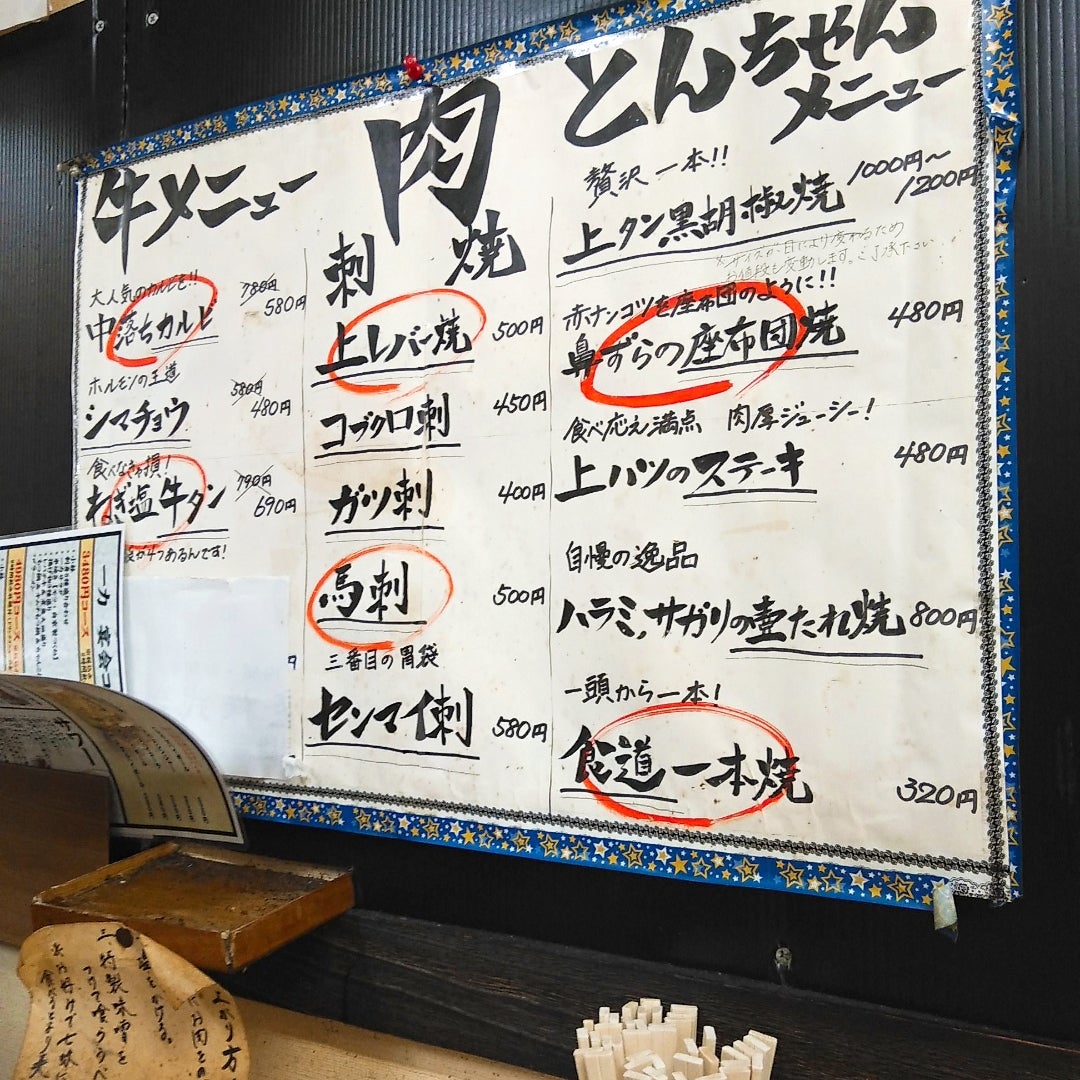 牛メニュー
大人気のカルビを!!
中落ちカルビ
780円
580円
ホルモンの王道
シマチョウ
580円
480円
食べなきゃ損!
ねぎ塩牛タン
790円
690円
が4つあるんです!
肉
刺
焼
上レバー焼
500円
コブクロ刺
450円
ガツ刺
400円
馬刺
500円
三番目の胃袋
センマイ刺
580円
とんちゃん
メニュー
贅沢一本!!
上タン黒胡椒焼
1000円〜
1200円
※サイズが日により変わるため
お値段も変動します。ご了承下さい
赤ナンコツを座布団のように!!
鼻ずらの座布団焼
480円
食べ応え満点 肉厚ジューシー!
上ハツのステーキ
480円
自慢の逸品
ハラミ、サガリの壺たれ焼
800円
一頭から一本!
食道一本焼
320円
一力 宴会コ
3480円コース
4980円コース
方
三、特製味噌を
つけて喰うべ